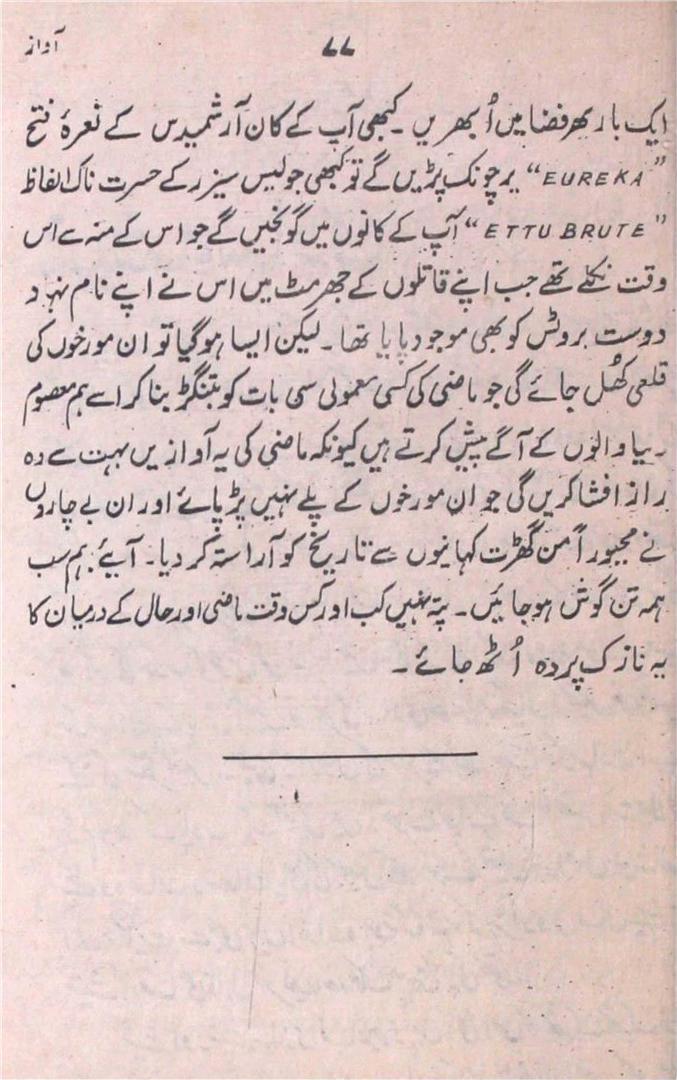 آواز
۷۷
ایک بار پھر فضا میں اُبھریں۔ کبھی آپ کے کان آرشمیدس کے نعرۂ فتح
"EUREKA" پر چونک پڑیں گے تو کبھی جولیس سیزر کے حسرت ناک الفاظ
"ETTU BRUTE" آپ کے کانوں میں گونجیں گے جو اس کے منہ سے اس
وقت نکلے تھے جب اپنے قاتلوں کے جھرمٹ میں اس نے اپنے نام نہاد
دوست بروٹس کو بھی موجود پایا تھا۔ لیکن ایسا ہو گیا تو ان مورخوں کی
قلعی کھُل جائے گی جو ماضی کی کسی معمولی سی بات کو بتنگڑ بنا کر اسے ہم معصوم
دنیا والوں کے آگے پیش کرتے ہیں کیونکہ ماضی کی یہ آوازیں بہت سے وہ
راز افشا کریں گی جو ان مورخوں کے پلے نہیں پڑ پائے اور ان بے چاروں
نے مجبوراً من گھڑت کہانیوں سے تاریخ کو آراستہ کر دیا۔ آیئے ہم سب
ہمہ تن گوش ہو جائیں۔ پتہ نہیں کب اور کس وقت ماضی اور حال کے درمیان کا
یہ نازک پردہ اُٹھ جائے۔